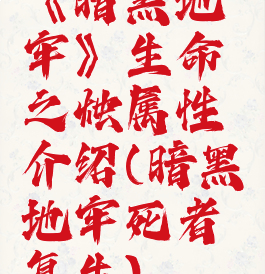 《暗黑地
牢》生命
之怏属性
介绍(暗黑
地牢死者
复生)